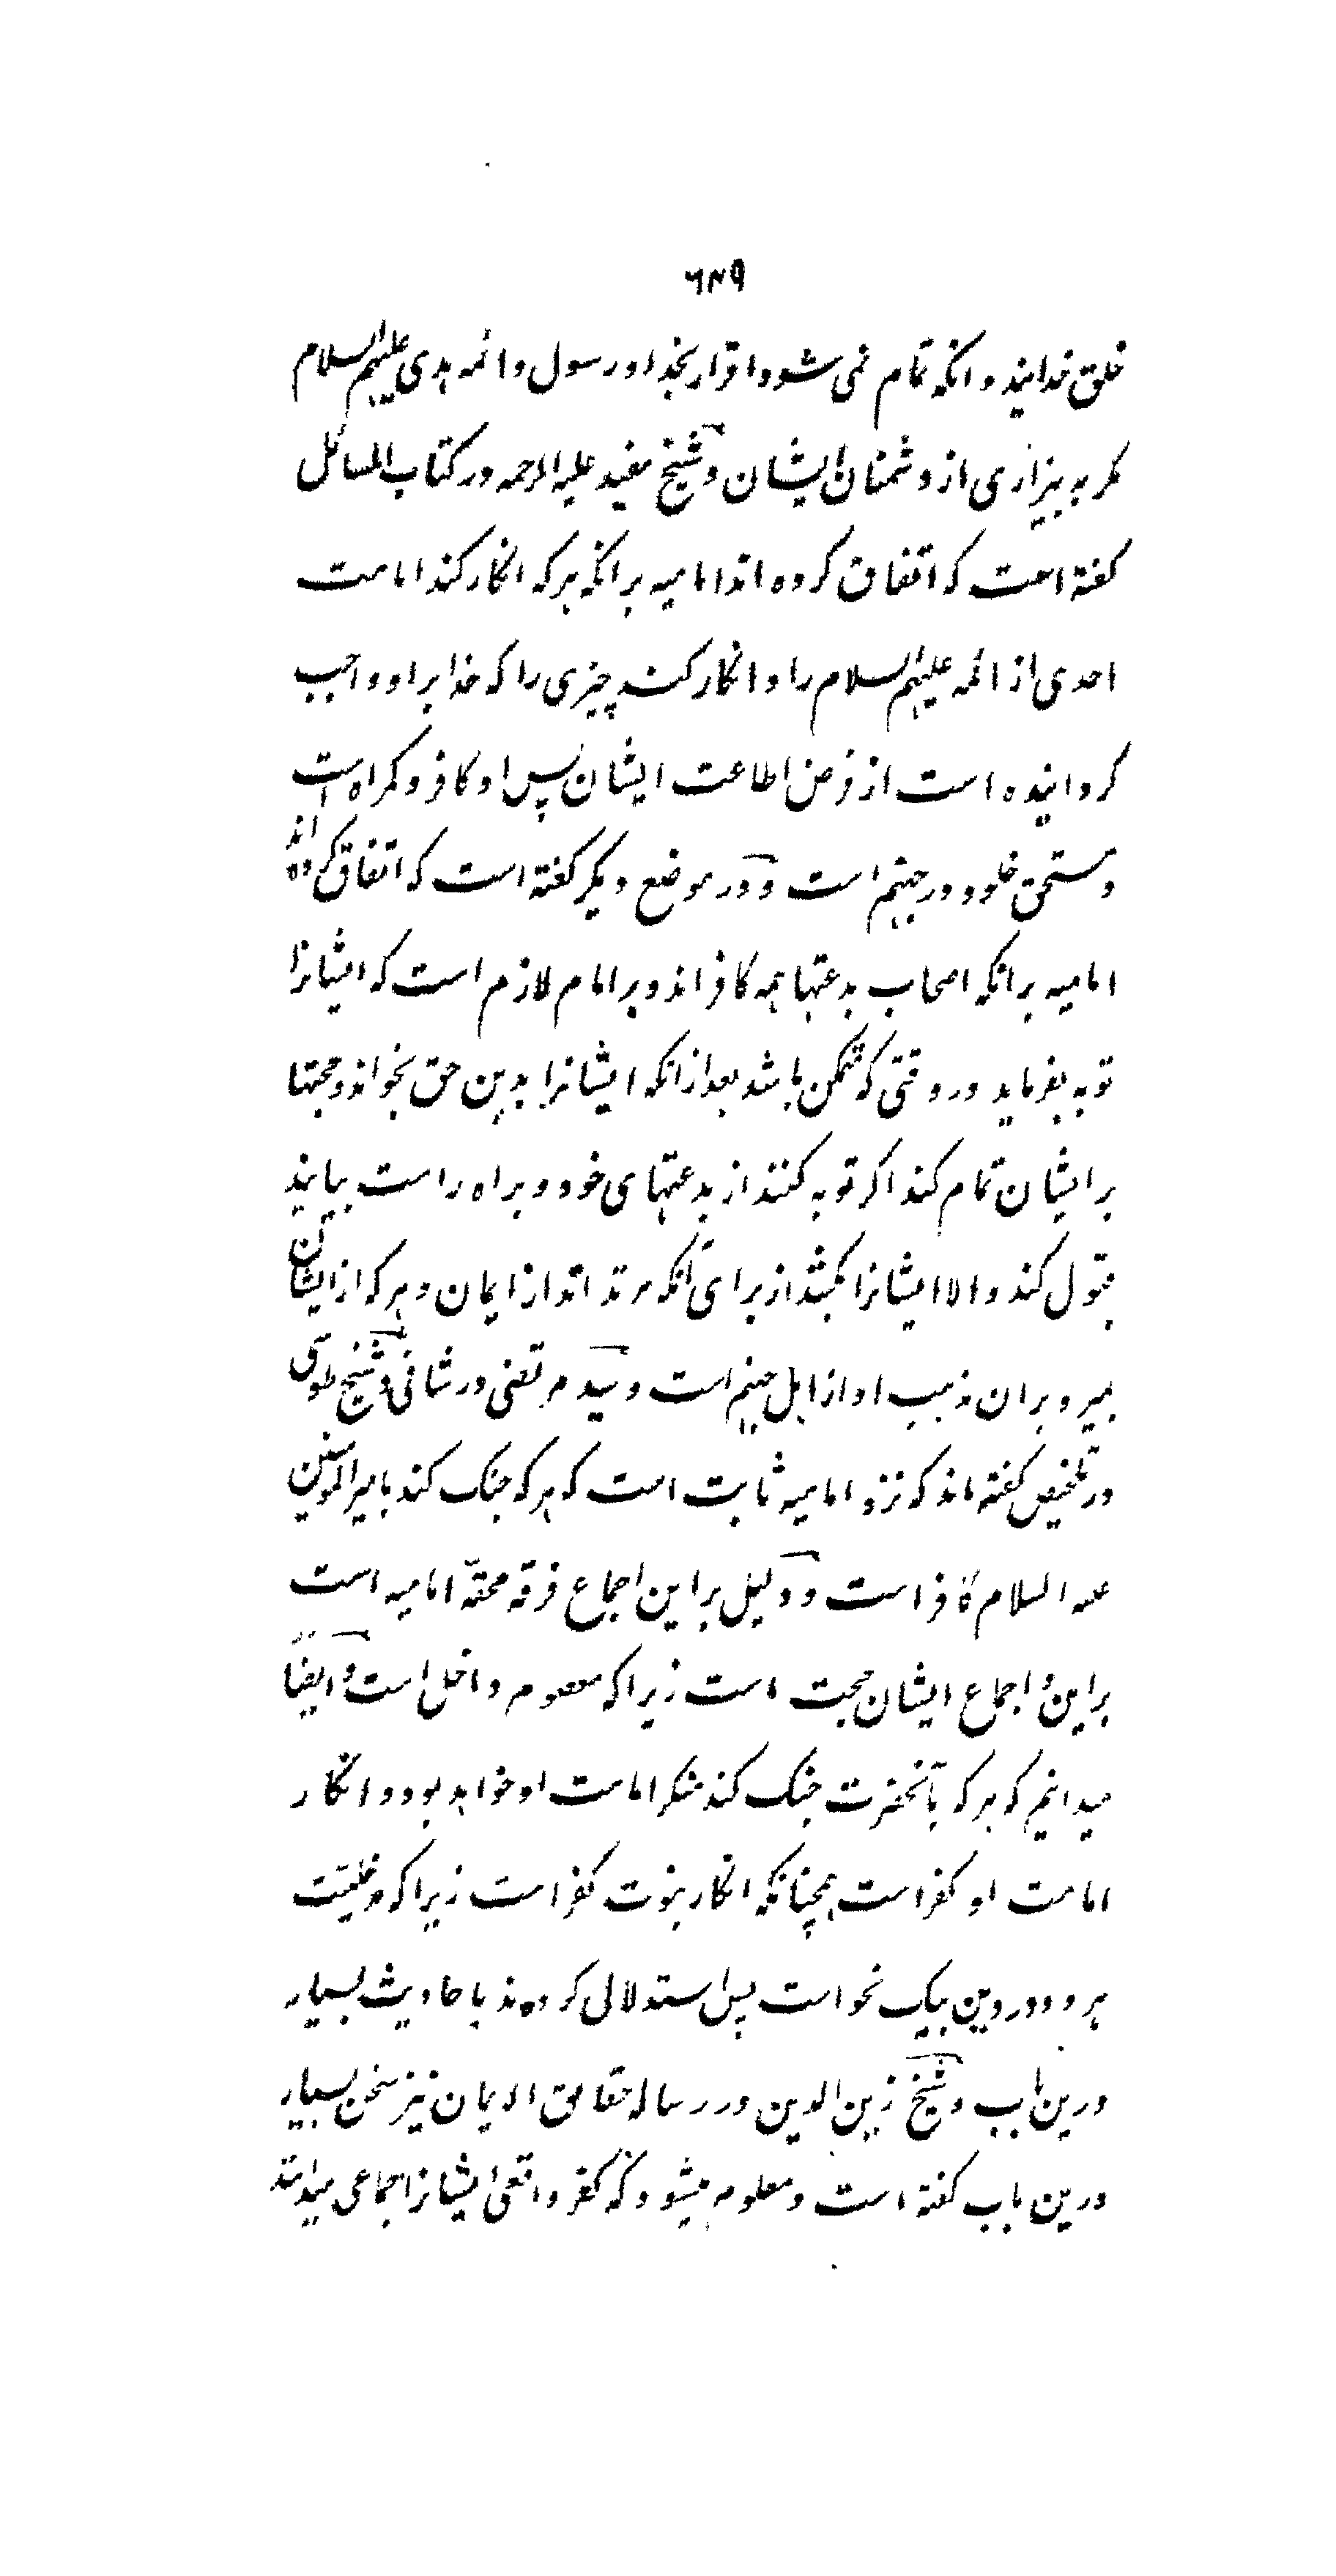 ٦٤٩
خلق خدایند و انکه تمام نمی شود اقرار بخدا و رسول و ائمه هدی علیهم السلام
مکر به بیزاری از دشمنان ایشان و شیخ مفید علیه الرحمه در کتاب المسائل
کفته است که اتفاق کرده اند امامیه بر انکه هر که انکار کند امامت
احدی از ائمه علیهم السلام را و انکار کند چیزی را که خدا بر او واجب
کردانیده است از فرض اطاعت ایشان پس او کافر و کمراه است
و مستحق خلود در جهنم است و در موضع دیکر کفته است که اتفاق کرده اند
امامیه بر انکه اصحاب بدعتها همه کافر اند و بر امام لازم است که ایشانرا
توبه بفرماید در وقتی که متمکن باشد بعد از انکه ایشانرا بدین حق بخواند و حجتها
بر ایشان تمام کند اکر توبه کنند از بدعتهای خود و براه راست بیایند
قبول کند و الا ایشانرا بکشد از برای آنکه مرتد اند از ایمان و هر که از ایشان
بمیرد بر ان مذهب او از اهل جهنم است و سید مرتضی در شافی و شیخ طوسی
در تلخیص کفته اند که نزد امامیه ثابت است که هر که جنک کند با امیر المومنین
علیه السلام کافر است و دلیل بر این اجماع فرقه محقّه امامیه است
بر این و اجماع ایشان حجت است زیرا که معصوم داخل است و ایضاً
میدانیم که هر که بآنحضرت جنک کند منکر امامت او خواهد بود و انکار
امامت او کفر است همچنانکه انکار نبوت کفر است زیرا که مدخلیّت
هر دو در دین بیک نحو است پس استدلالی کرده اند باحادیث بسیار
درین باب و شیخ زین الدین در رساله حقائق الایمان نیز سخن بسیار
درین باب کفته است و معلوم میشود که کفر واقعی ایشانرا اجماعی میدانند